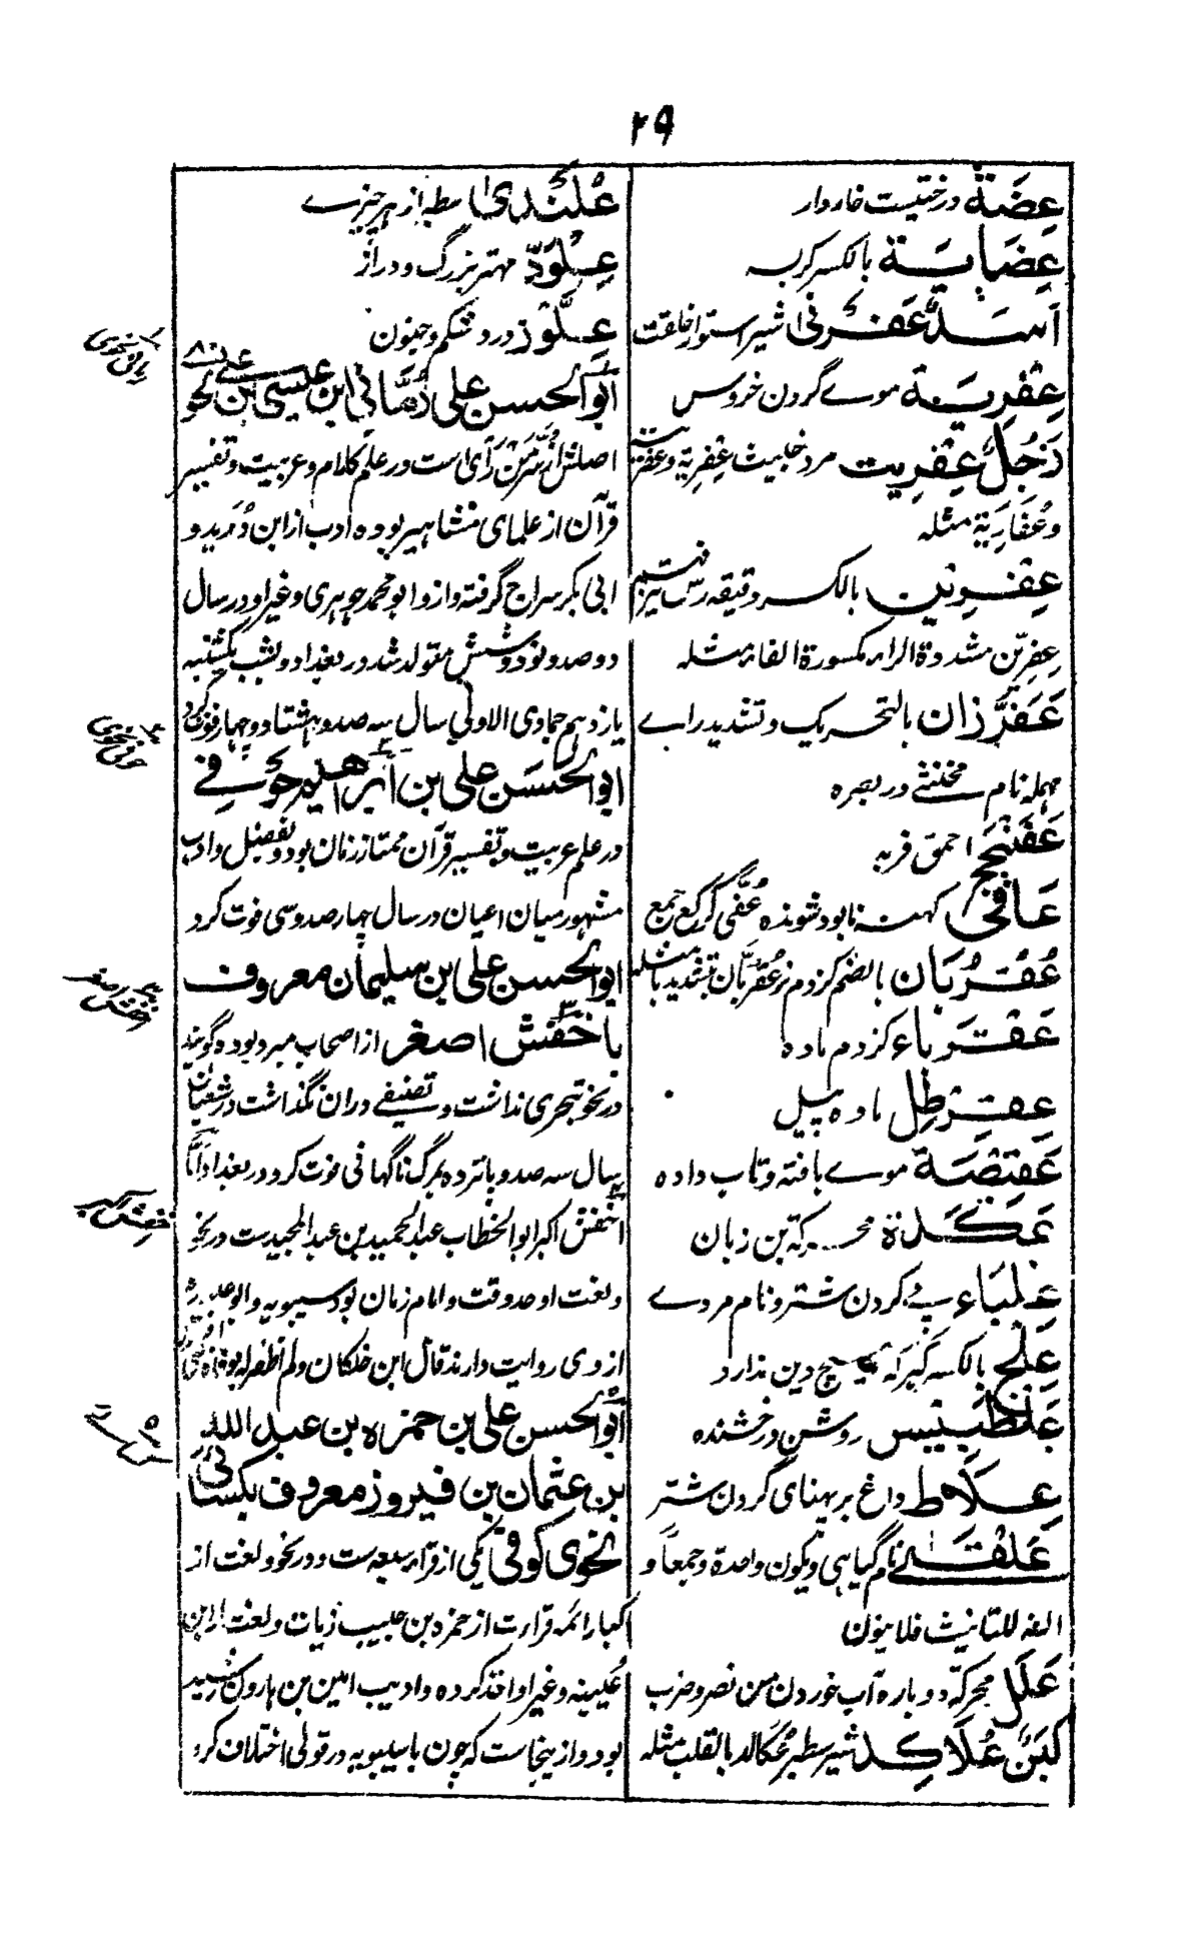 ۲۹
عِضَة درختیست خاردار
عِضَایَة بالکسر کربسہ
اَسَدٌ عَفَرْنٰی شیر استوار خلقت
عِفْرِیَة موے گردن خروس
رَجُلٌ عِفْرِیت مرد خبیث عِفْرِیَة وعِفْرِیت
وعُفَارِیَة مثلہ
عِفْرِین بالکسر دقیقہ رس تیز فہم
عِفِرِّین مشددة الراء مکسورة الفاء مثلہ
عَفَرَّزَان بالتحریک وتشدید راے
مہملہ نام مخنثے در بصرہ
عَفَنْجَج احمق فربہ
عَافی کہنہ نابود شوندہ عُفّٰی کرکّع جمع
عُقْرُبَان بالضم کژدم نر عُقْرُبّان بتشدید با مثلہ
عَقْرَبَاء کژدم مادہ
عِقَرْطِل مادہ پیل
عَقِصَة موے بافتہ وتاب دادہ
عَکَدَة محرکة بن زبان
عِلْبَاء پے گردن شتر و نام مردے
عِلْج بالکسر گبر کہ ہیچ دین ندارد
عَلْطَبِیس روشن درخشندہ
عِلَاط داغ بر پہنای گردن شتر
عَلْقٰے نام گیاہی ویکون واحدة وجمعاً و
الفہ للتانیث فلا ینون
عَلَل محرکة دوبارہ آب خوردن من نصر وضرب
لَبَنٌ عُلَاکِد شیر سطبر عُکَالِد بالقلب مثلہ
عَلَنْدٰی سطبر از ہر چیزے
عِلْوَدّ مہتر بزرگ و دراز
عِلَّوْز درد شکم و جنون
ابو الحسن علی رُمّانی ابن عیسی بن علی
اصلش از سُرَّ مَنْ رَأی است در علم کلام و عربیت و تفسیر
قرآن از علمای مشاہیر بودہ ادب از ابن دُرَید و
ابی بکر سراج گرفتہ و ازو ابو محمد جوہری وغیر او در سال
دوصد و نود و شش متولد شد در بغداد و بشب یکشنبہ
یازدہم جمادی الاولی سال سہ صد و ہشتاد و چہار فوت کرد
ابو الحسن علی بن ابراہیم حوفی
در علم عربیت و تفسیر قرآن ممتاز زمان بود و بفضل و ادب
مشہور میان اعیان در سال چہار صد و سی فوت کرد
ابو الحسن علی بن سلیمان معروف
باخفش اصغر از اصحاب مبرد بودہ گویند
در نحو تبحری نداشت و تصنیفے دران نگذاشت در شعبان
بسال سہ صد و پانزدہ بمرگ ناگہانی فوت کرد در بغداد اما
اخفش اکبر ابو الخطاب عبد الحمید بن عبد المجید ست در نحو
و لغت اوحد وقت و امام زمان بود سیبویہ و ابو عبیدہ
ازوی روایت دارند قال ابن خلکان ولم اظفر لہ بوفاة
ابو الحسن علی بن حمزہ بن عبد اللہ
بن عثمان بن فیروز معروف بکسائی
نحوی کوفی یکی از قراء سبعہ ست و در نحو و لغت از
کبار ائمہ قراءت از حمزہ بن حبیب زیات و لغت از ابن
عُیینہ وغیر او اخذ کردہ و ادیب امین بن ہارون رشید
بود و ازینجاست کہ چون با سیبویہ در قولی اختلاف کرد